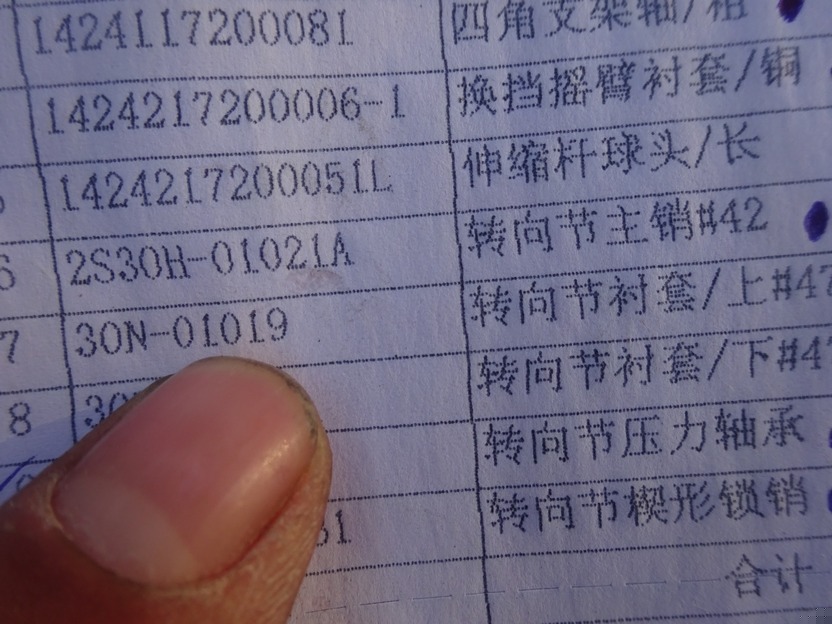 1424117200081 四角支架轴/粗
1424217200006-1 换挡摇臂衬套/铜
1424217200051L 伸缩杆球头/长
6 2S30H-01021A 转向节主销#42
7 30N-01019 转向节衬套/上#47
8 30 转向节衬套/下#47
转向节压力轴承
51 转向节楔形锁销
合计